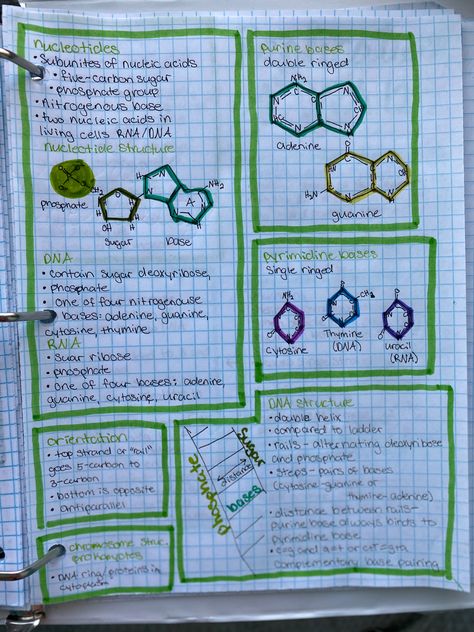 nucleotides
• Subunites of nucleic acids
• five-carbon sugar
• phosphate group
• nitrogenous base
• two nucleic acids in
living cells RNA/DNA
nucleotide structure
phosphate
CH₂
OH
H
sugar
NH₂
A
base
DNA
• contain sugar deoxyribose,
• phosphate
• one of four nitrogenouse
• bases: adenine, guanine,
cytosine, thymine
RNA
• suar ribose
• phosphate
• one of four bases: adenine,
guanine, cytosine, uracil
purine bases
double ringed
NH₂
adenine
O
H₂N
guanine
pyrimidine bases
single ringed
NH₂
cytosine
CH₃
Thymine
(DNA)
uracil
(RNA)
orientation
• top strand or "rail"
goes 5-carbon to
3-carbon
• bottom is opposite
• antiparallel
chromosome struc.
prokaryotes
• DNA ring/proteins in
cytoplasm
phosphate
sugars
distance
bases
DNA structure
• double helix
• compared to ladder
• rails - alternating deoxyribose
and phosphate
• steps - pairs of bases
(cytosine-guanine or
thymine-adenine)
• distance between rails -
purine base always binds to
pyrimidine base
complementary base pairing